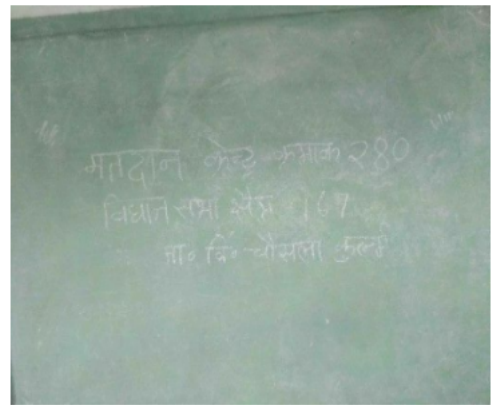 मतदान केन्द्र क्रमांक २80
विधान सभा क्षेत्र - 167
मा० वि० चौसला कुल्मी